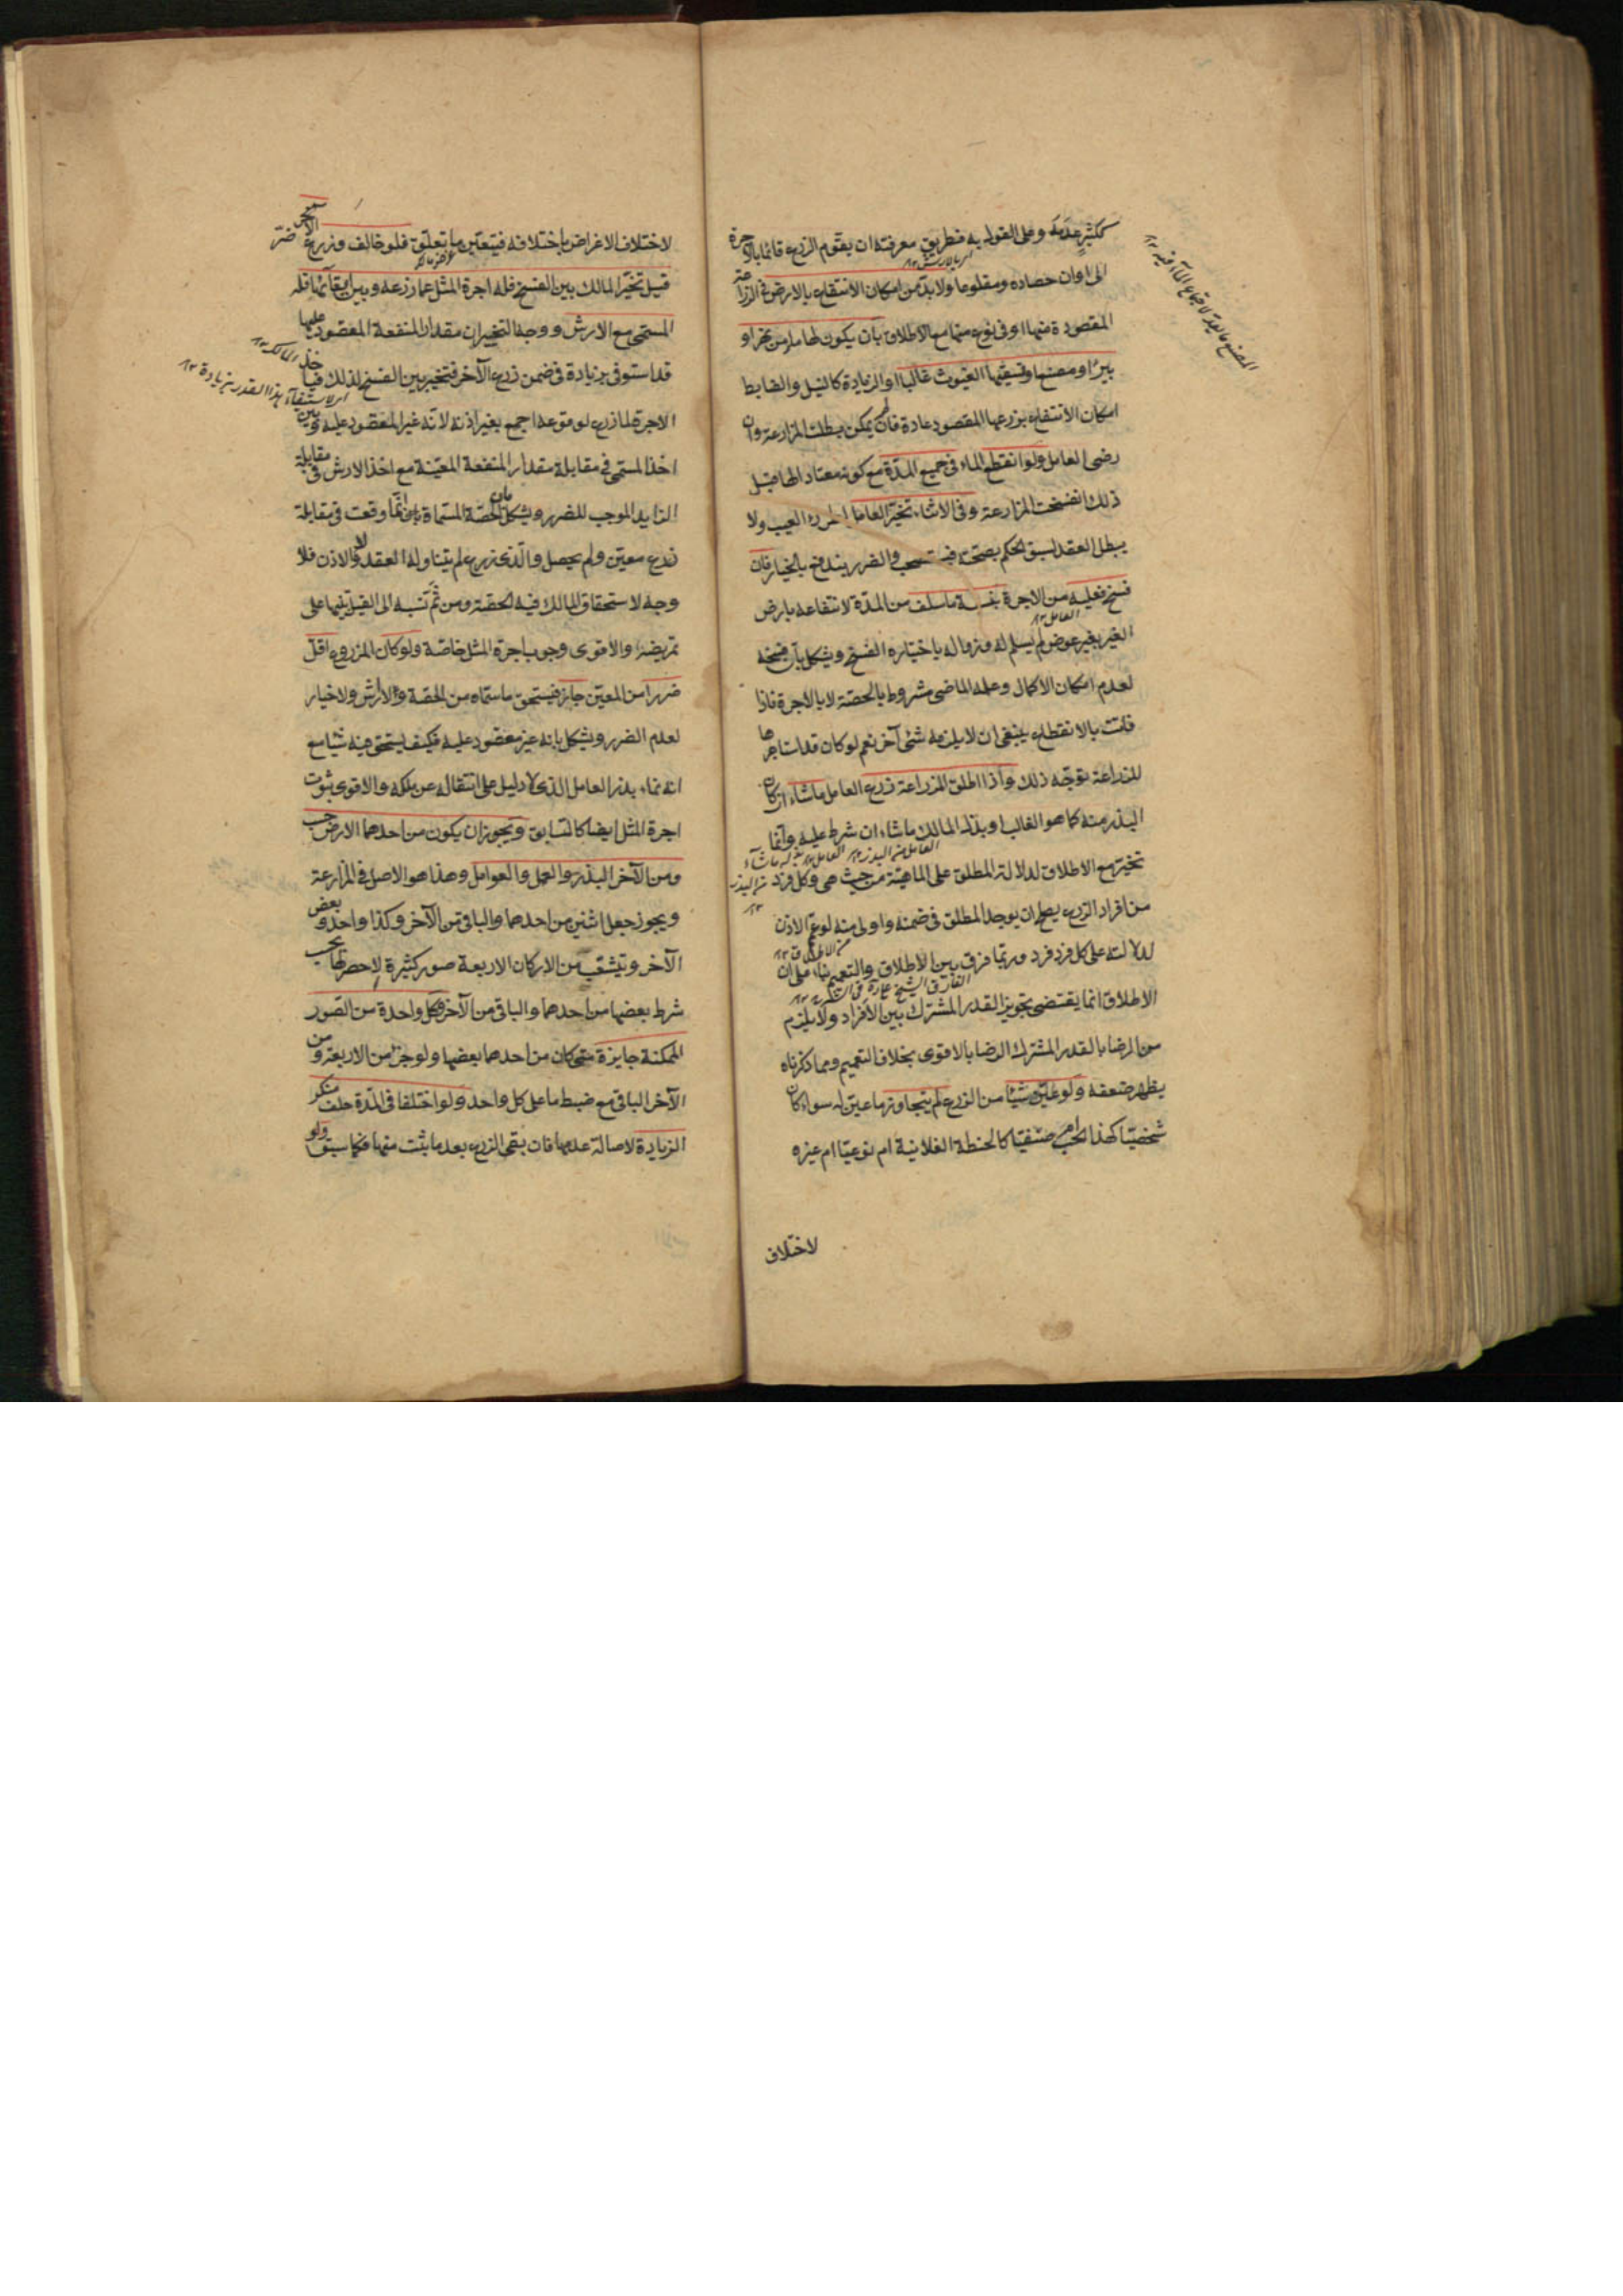 كثير عدمه وعلى القول به فطريق معرفته ان يقوم الزرع قائما بالاجرة
الى اوان حصاده ومقلوعا ولا بد من امكان الانتفاع بالارض في الزراعة
المقصودة منها او في نوع منها مع الاطلاق بان يكون لها ماء من نهر او
بئر او مصنع او تسقيها الغيوث غالبا او الزيادة كالنيل والضابط
امكان الانتفاع بزرعها المقصود عادة فان لم يمكن بطلت المزارعة وان
رضى العامل ولو انقطع الماء في جميع المدة مع كونه معتادا لها قبل
ذلك انفسخت المزارعة وفي الاثناء تخير العامل لطروء العيب ولا
يبطل العقد لسبق الحكم بصحته فيستصحب والضرر يندفع بالخيار فان
فسخ فعليه من الاجرة بنسبة ما سلف من المدة لانتفاعه بارض
الغير بغير عوض لم يسلم له وزواله باختياره الفسخ ويشكل بان فسخه
لعدم امكان الاكمال وعمله الماضى مشروط بالحصة لا بالاجرة فاذا
فاتت بالانقطاع ينبغى ان لا يلزمه شئ آخر نعم لو كان قد استاجرها
للزراعة توجه ذلك واذا اطلق المزارعة زرع العامل ما شاء ان كان
البذر منه كما هو الغالب او بذل المالك ما شاء ان شرط عليه وانما
تخير مع الاطلاق لدلالة المطلق على الماهية من حيث هى وكل فرد
من افراد الزرع يصلح ان يوجد المطلق في ضمنه واولى منه لو عمم الاذن
لدلالته على كل فرد فرد وربما فرق بين الاطلاق والتعميم بناء على ان
الاطلاق انما يقتضى تجويز القدر المشترك بين الافراد ولا يلزم
من الرضا بالقدر المشترك الرضا بالاقوى بخلاف التعميم ومما ذكرناه
يظهر ضعفه ولو عين شيئا من الزرع لم يتجاوز ما عين له سواء كان
شخصيا كهذا الحب ام صنفيا كالحنطة الفلانية ام نوعيا ام غيره
لاختلاف
لاختلاف الاغراض باختلافه فيتعين ما تعلق فلو خالف وزرع الاضر
قيل تخير المالك بين الفسخ فله اجرة المثل عما زرعه وبين ابقائه فله
المسمى مع الارش ووجه التخيير ان مقدار المنفعة المعقود عليها
قد استوفى بزيادة في ضمن زرع الآخر فتخير بين الفسخ لذلك فياخذ
الاجرة لما زرع لوقوعه اجمع بغير اذنه لانه غير المعقود عليه وبين
اخذ المسمى في مقابلة مقدار المنفعة المعينة مع اخذ الارش في مقابلة
الزايد الموجب للضرر ويشكل بان الحصة المسماة انما وقعت في مقابلة
زرع معين ولم يحصل والذى زرع لم يتناوله العقد ولا الاذن فلا
وجه لاستحقاق المالك فيه الحصة ومن ثم نسبه الى القيل تنبيها على
تمريضه والاقوى وجوب اجرة المثل خاصة ولو كان المزروع اقل
ضررا من المعين جاز فيستحق ما سماه من الحصة ولا ارش ولا خيار
لعدم الضرر ويشكل بانه غير معقود عليه فكيف يستحق فيه شيئا مع
انه نماء بذر العامل الذى لا دليل على انتقاله عن ملكه والاقوى ثبوت
اجرة المثل ايضا كالسابق ويجوز ان يكون من احدهما الارض حسب
ومن الآخر البذر والعمل والعوامل وهذا هو الاصل في المزارعة
ويجوز جعل اثنين من احدهما والباقى من الآخر وكذا واحد وبعض
الآخر وتيشعب من الاركان الاربعة صور كثيرة لا حصر لها بحسب
شرط بعضها من احدهما والباقى من الآخر فكل واحدة من الصور
الممكنة جايزة متى كان من احدهما بعضها ولو جزء من الاربعة ومن
الآخر الباقى مع ضبط ما على كل واحد ولو اختلفا في المدة حلف منكر
الزيادة لاصالة عدمها فان بقى الزرع بعد ما يثبت منها فكما سبق ولو